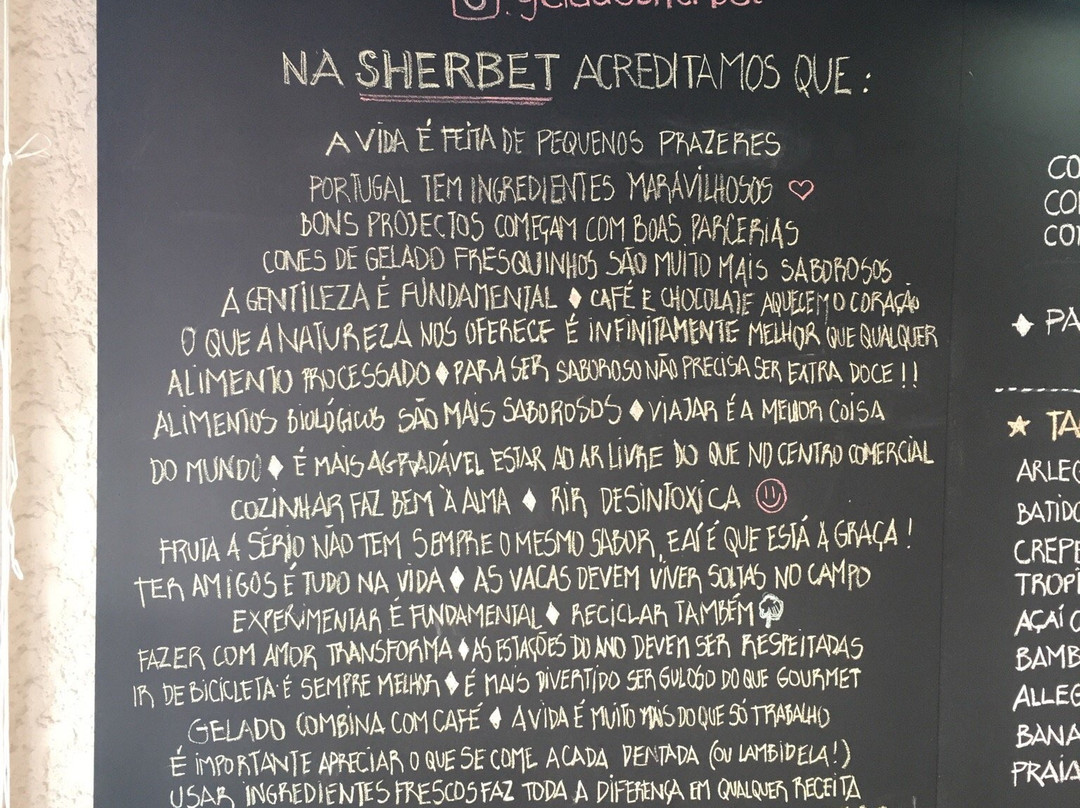 geladosherbet
NA SHERBET ACREDITAMOS QUE:
A VIDA É FEITA DE PEQUENOS PRAZERES
PORTUGAL TEM INGREDIENTES MARAVILHOSOS ♡
BONS PROJECTOS COMEÇAM COM BOAS PARCERIAS
CONES DE GELADO FRESQUINHOS SÃO MUITO MAIS SABOROSOS
A GENTILEZA É FUNDAMENTAL ♦ CAFÉ E CHOCOLATE AQUECEM O CORAÇÃO
O QUE A NATUREZA NOS OFERECE É INFINITAMENTE MELHOR QUE QUALQUER
ALIMENTO PROCESSADO ♦ PARA SER SABOROSO NÃO PRECISA SER EXTRA DOCE!!
ALIMENTOS BIOLÓGICOS SÃO MAIS SABOROSOS ♦ VIAJAR É A MELHOR COISA
DO MUNDO ♦ É MAIS AGRADÁVEL ESTAR AO AR LIVRE DO QUE NO CENTRO COMERCIAL
COZINHAR FAZ BEM À ALMA ♦ RIR DESINTOXICA
FRUTA A SÉRIO NÃO TEM SEMPRE O MESMO SABOR, E AÍ É QUE ESTÁ A GRAÇA!
TER AMIGOS É TUDO NA VIDA ♦ AS VACAS DEVEM VIVER SOLTAS NO CAMPO
EXPERIMENTAR É FUNDAMENTAL ♦ RECICLAR TAMBÉM
FAZER COM AMOR TRANSFORMA ♦ AS ESTAÇÕES DO ANO DEVEM SER RESPEITADAS
IR DE BICICLETA É SEMPRE MELHOR ♦ É MAIS DIVERTIDO SER GULOSO DO QUE GOURMET
GELADO COMBINA COM CAFÉ ♦ A VIDA É MUITO MAIS DO QUE SÓ TRABALHO
É IMPORTANTE APRECIAR O QUE SE COME A CADA DENTADA (OU LAMBIDELA!)
USAR INGREDIENTES FRESCOS FAZ TODA A DIFERENÇA EM QUALQUER RECEITA
CO
CO
CO
♦ PA
★ TA
ARLEG
BATIDO
CREPE
TROPI
AÇAÍ
BAMB
ALLEG
BANA
PRAIA